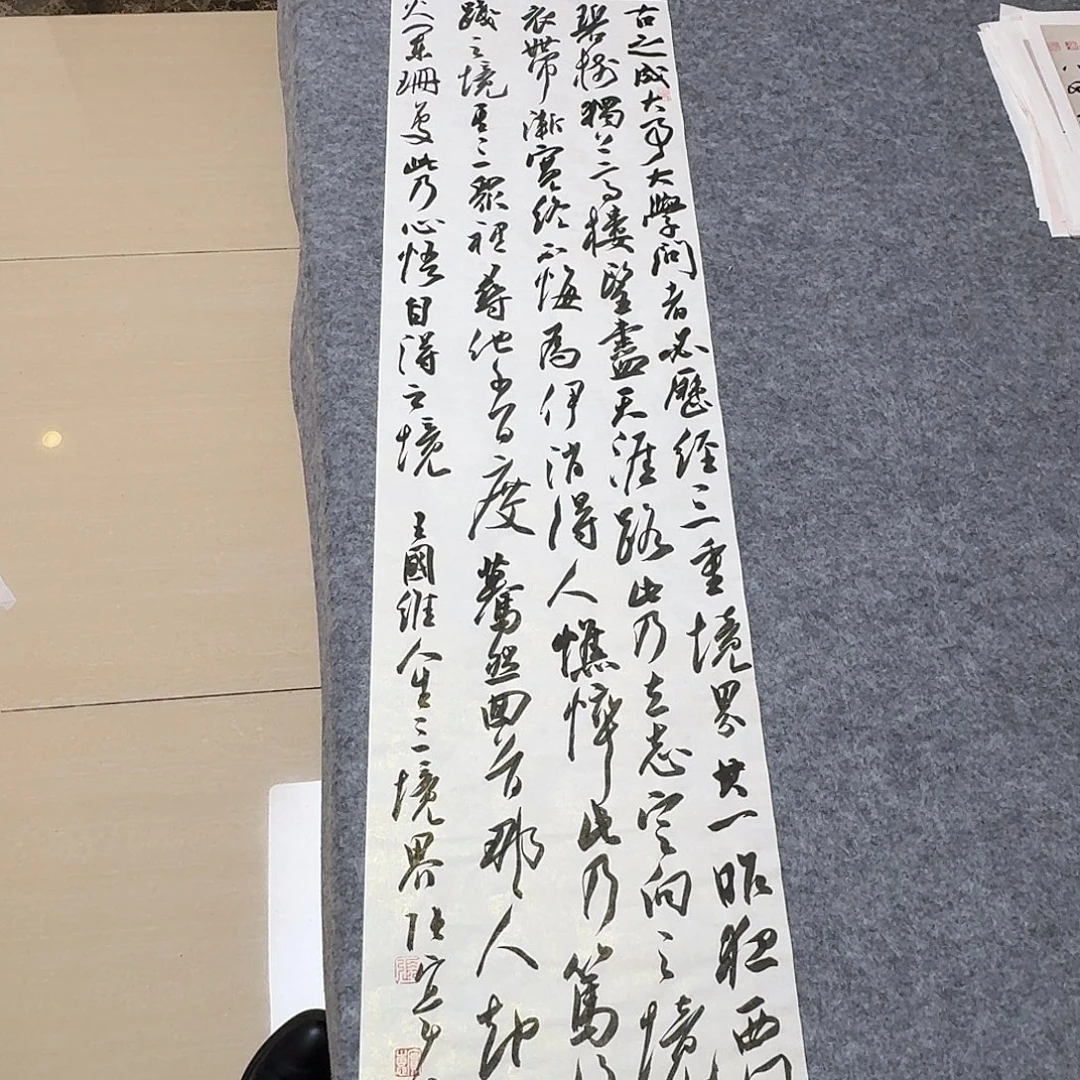 古之成大事大學問者必歷經三重境界其一昨夜西
碧樹獨上高樓望盡天涯路此乃立志定向之境
衣帶漸寬終不悔為伊消得人憔悴此乃篤
踐之境其三眾裡尋他千百度驀然回首那人却
火闌珊處此乃心悟自得之境 王國維人生三境界 張宜